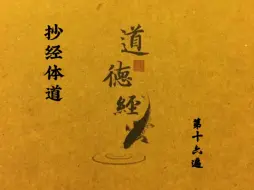 抄经体道
道德經
第十六遍